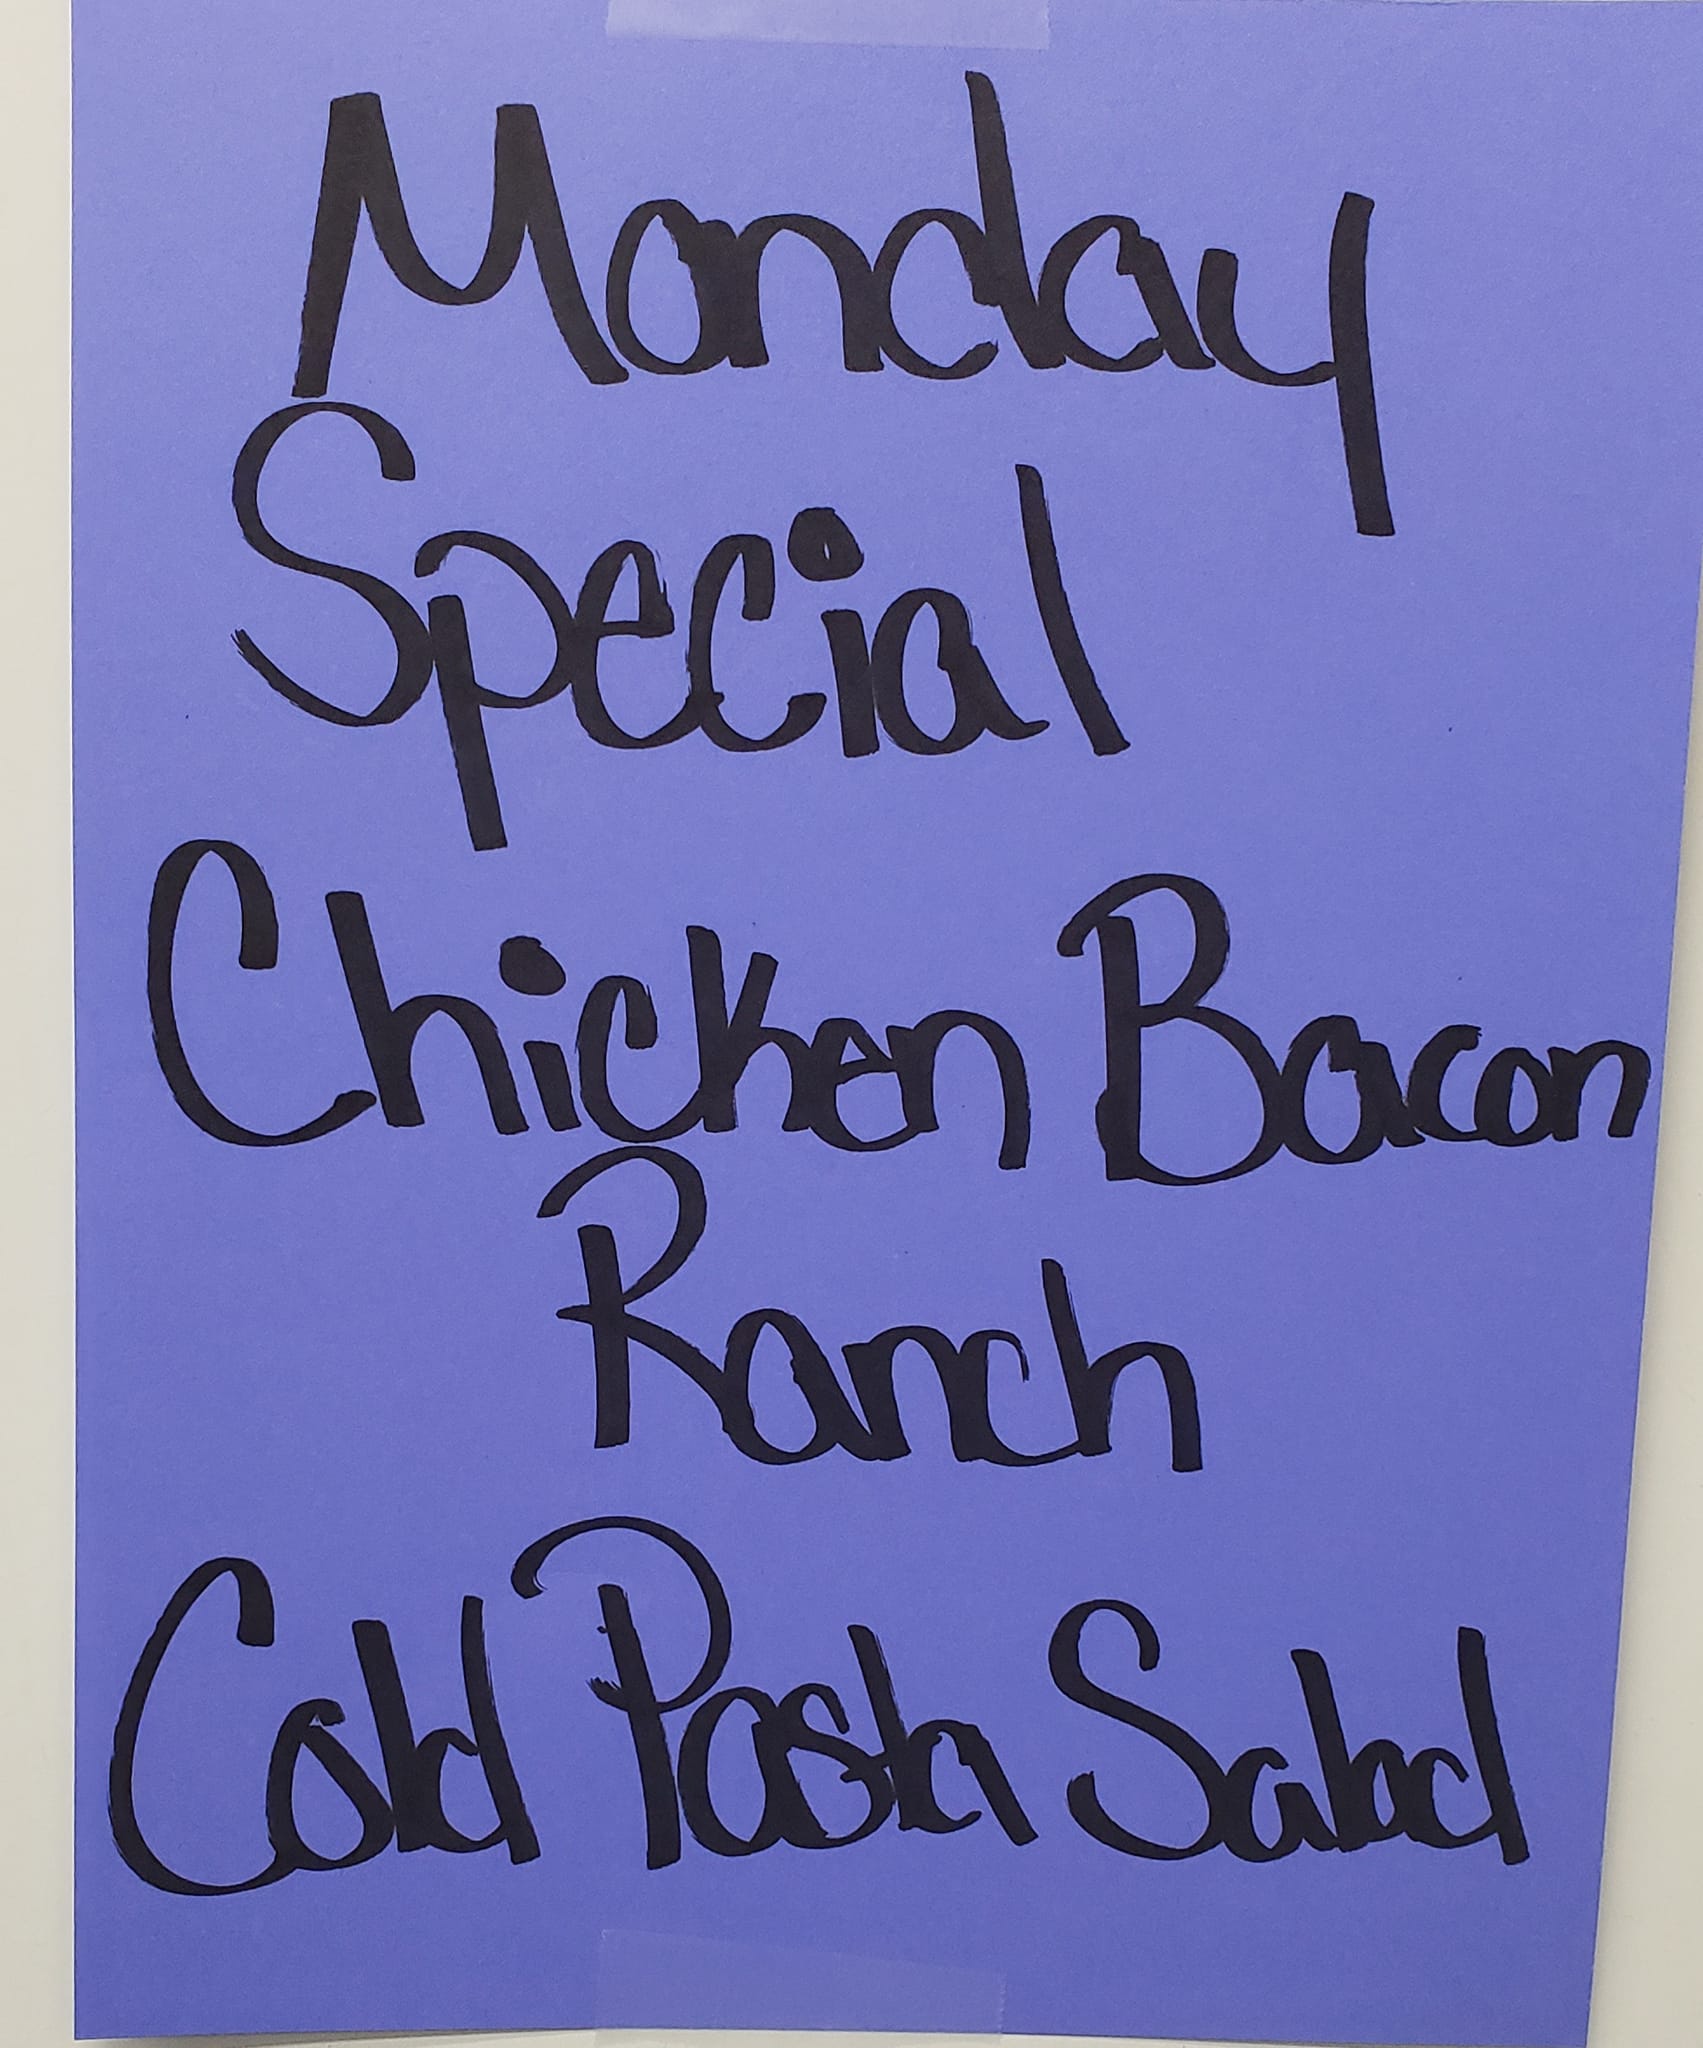 Monday
Special
Chicken Bacon
Ranch
Cold Pasta Salad